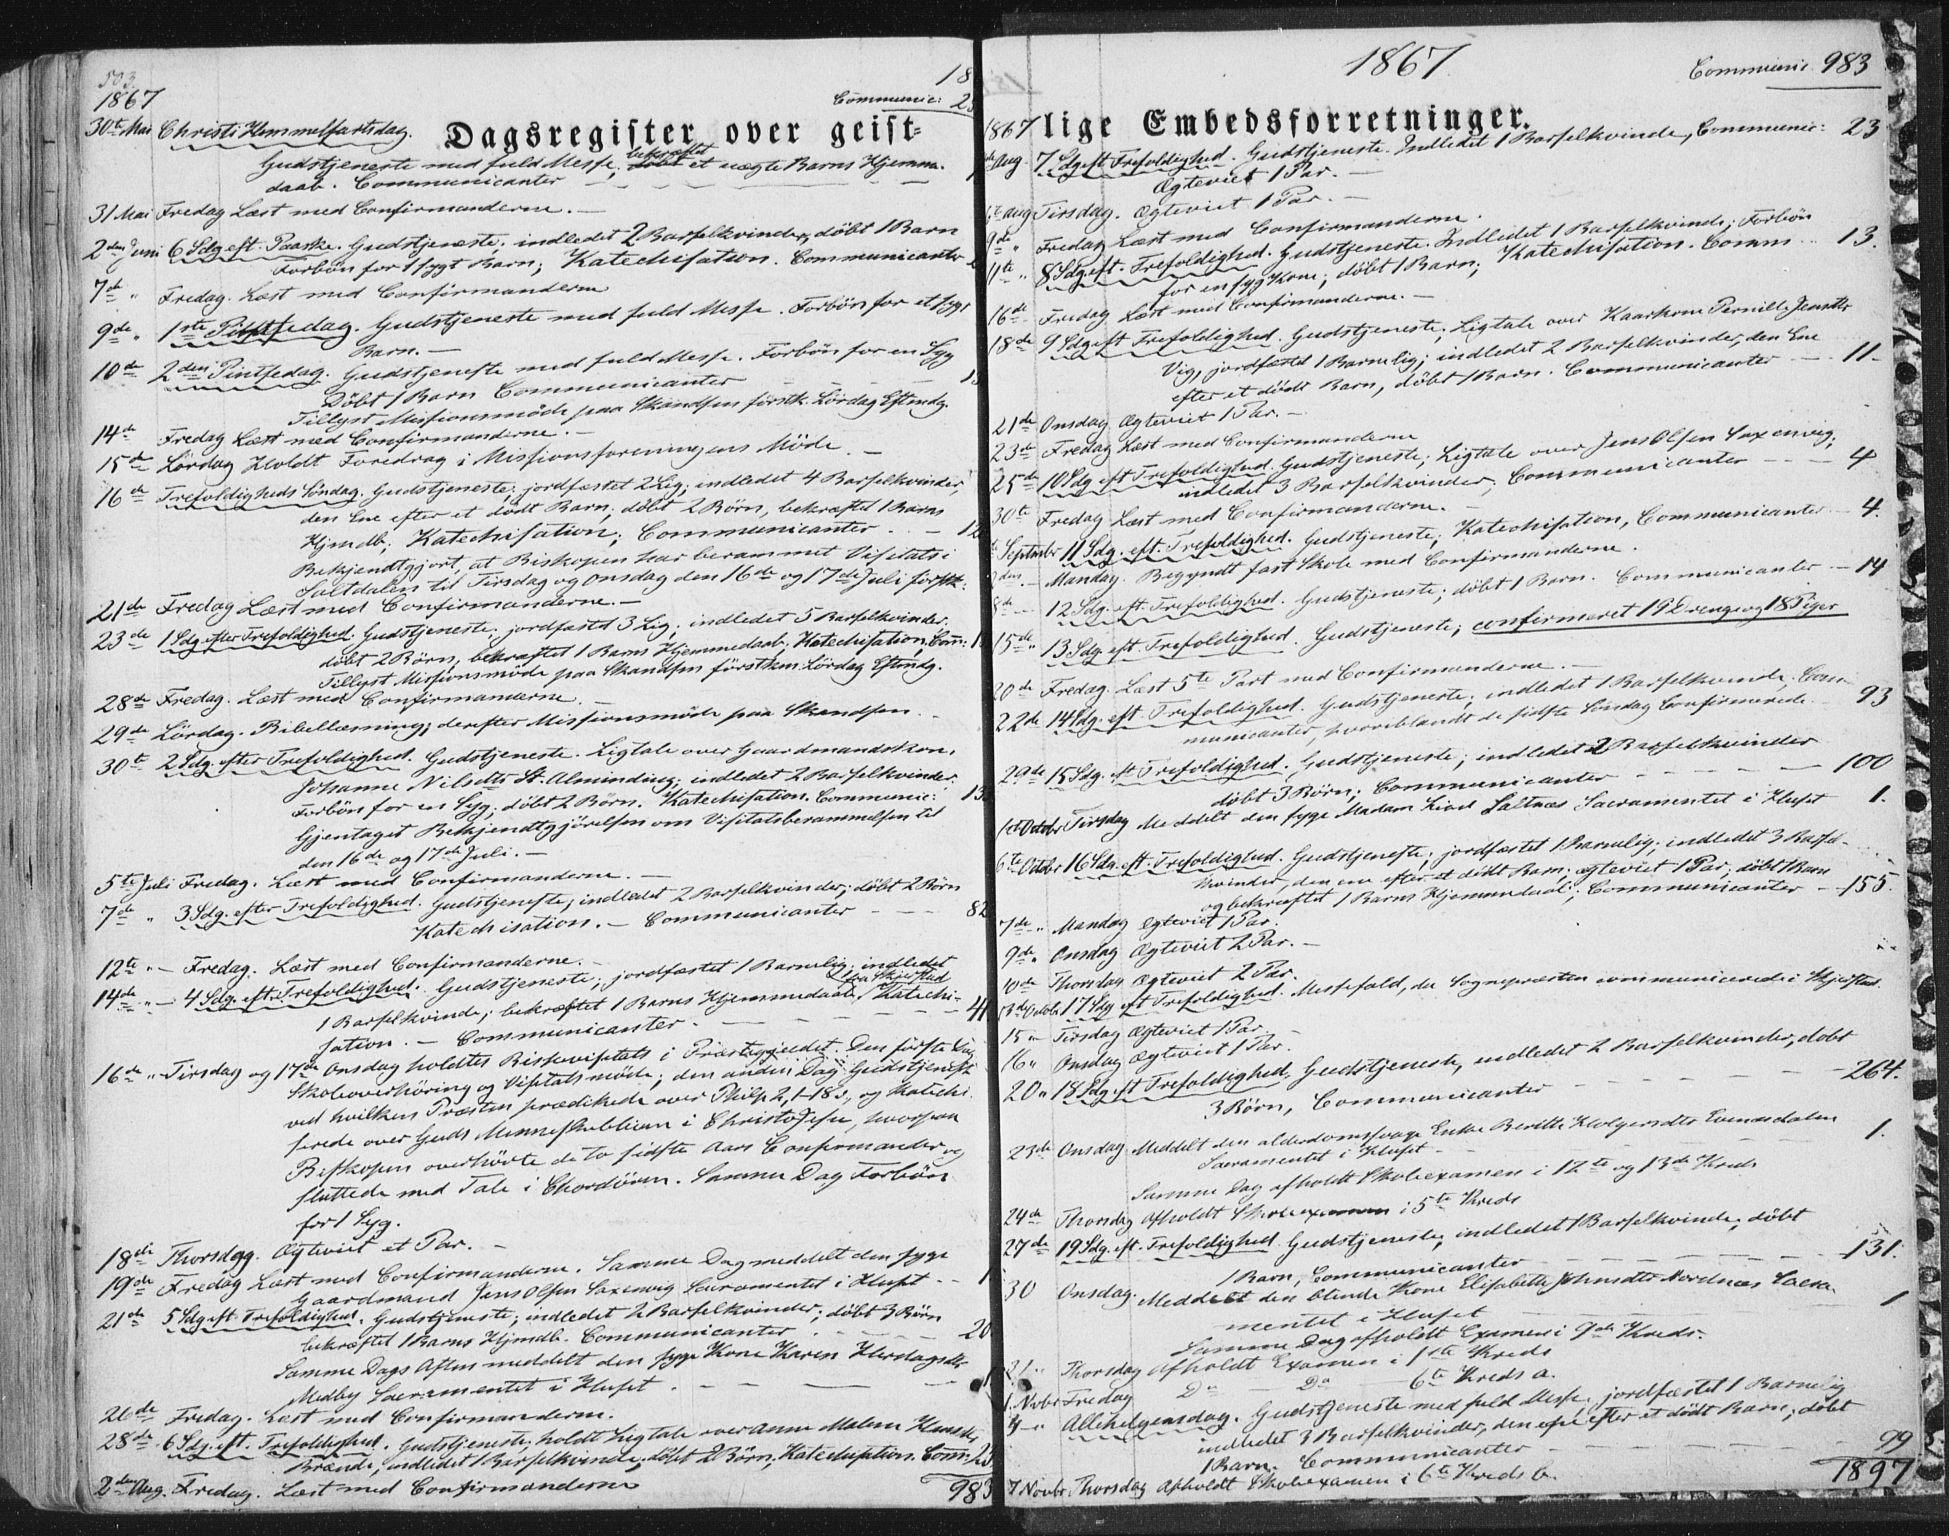 503.
1867
Communic:
Dagsregister over geist=
30te Mai Christi Himmelfartsdag.
Gudstjeneste med fuld Messe, bekræftet et uægte Barns Hjemme-
daab. Communicanter
31 Mai Fredag Læst med Confirmanderne.
2den Juni 6 Sdg eft. Paaske. Gudstjeneste. indledet 2 Barselkvinder, döbt 1 Barn
Forbön for 1 sygt Barn; Katechisation. Communicanter
7de " Fredag. Læst med Confirmanderne
9de " 1ste Pintsedag. Gudstjeneste med fuld Messe. Forbön for et sygt
Barn.
10de 2den Pintsedag. Gudstjeneste med fuld Messe. Forbön for en Syg
Döbt 1 Barn Communicanter
Tillyst Missionsmöde paa Skandsen förstk. Lördag Eftmdg.
14de Fredag Læst med Confirmanderne.
15de Lördag Holdt Foredrag i Missionsforeningens Möde.
16de Trefoldigheds Söndag. Gudstjeneste; jordfæstet 2 Lig; indledet 4 Barselkvinder,
den Ene efter et dödt Barn; döbt 2 Börn, bekræftet 1 Barns
Hjmdb; Katechisation; Communicanter
Bekjendtgjort, at Biskopen har berammet Visitats i
Saltdalen til Tirsdag og Onsdag den 16de og 17de Juli förstk.
21de Fredag Læst med Confirmanderne.
23de 1 Sdg efter Trefoldighed. Gudstjeneste. jordfæstet 3 Lig; indledet 5 Barselkvinder.
döbt 2 Börn, bekræftet 1 Barns Hjemmedaab. Katechisation, Com:
Tillyst Missionsmöde paa Skandsen förstkm. Lördag Eftmdg.
28de Fredag. Læst med Confirmanderne
29de Lördag. Bibellæsning; derefter Missionsmöde paa Skandsen
30te 2 Sdg. efter Trefoldighed. Gudstjeneste. Ligtale over Gaardmandskon.
Johanne Nilsdtr St. Alminding; indledet 2 Barselkvinder.
Forbön for en Syg; döbt 2 Börn. Katechisation. Communic:
Gjentaget Bekjendtgjörelsen om Visitatsberammelsen til
den 16de og 17de Juli.
5te Juli Fredag. Læst med Confirmanderne.
7de " 3 Sdg. efter Trefoldighed. Gudstjeneste; indledet 2 Barselkvinder; döbt 2 Börn
Katechisation. Communicanter 82
12te " Fredag. Læst med Confirmanderne.
14de " 4 Sdg. eft. Trefoldighed. Gudstjeneste; jordfæstet 1 Barnelig; indledet
1 Barselkvinde; bekræftet 1 Barns Hjemmedaab, Katechi-
sation. Communicanter.
16de " Tirsdag og 17de Onsdag holdtes Bispevisitats i Præstegjeldet. Den förste Dag
Skoleoverhöring og Visitatsmöde; den anden Dag Gudstjeneste
ved hvilken Præsten prædikede over Philp 2, 1-18, og Katechi
serede over Guds Menneskeblieven i Christo Jesu, hvorpaa
Biskopen overhörte de to sidste Aars Confirmander og
sluttede med Tale i Chordören. Samme Dag Forbön
for 1 Syg.
18de Thorsdag. Ægteviet et Par.
19de Fredag Læst med Confirmanderne. Samme Dag meddelt den syge
Gaardmand Jens Olsen Saxenvig Sacramentet i Huset
21de 5 Sdg eft. Trefoldighed. Gudstjeneste; indledet 2 Barselkvinder; döbt 3 Börn
bekræftet 1 Barns Hjmdb. Communicanter
Samme Dags Aften meddelt den syge Kone Karen Hardagsdtr
Medby Sacramentet i Huset.
26de Fredag. Læst med Confirmanderne.
28de 6 Sdg. eft. Trefoldighed. Gudstjeneste, holdt Ligtale over Anne Malene Hansdt.
Brænde, indledet 1 Barselkvinde, döbt 2 Börn; Katechisation. Com:
2den Aug. Fredag. Læst med Confirmanderne
983
1867
Communic. 983
lige Embedsforretninger.
1867
Aug. 7 Sdg eft Trefoldighed. Gudstjeneste. Indledet 1 Barselkvinde, Communic: 23
Ægteviet 1 Par.
6te Aug Tirsdag. Ægteviet 1 Par.
9de " Fredag Læst med Confirmanderne.
11te " 8 Sdg eft. Trefoldighed. Gudstjeneste. Indledet 1 Barselkvinde; Forbön
for en syg Kone; döbt 1 Barn; Katechisation. Comm 13.
16de Fredag Læst med Confirmanderne.
18de 9 Sdg eft Trefoldighed. Gudstjeneste, Ligtale over Kaarkone Pernille Jensdtr
Vig, jordfæstet 1 Barnelig; indledet 2 Barselkvinder, den Ene
efter et dödt Barn, döbt 1 Barn. Communicanter 11
21de Onsdag Ægteviet 1 Par.
23de Fredag Læst med Confirmanderne
25de 10 Sdg eft Trefoldighed. Gudstjeneste; Ligtale over Jens Olsen Saxenvig;
indledet 3 Barselkvinder, Communicanter 4
30te Fredag Læst med Confirmanderne.
Septembr 11 Sdg. eft. Trefoldighed. Gudstjeneste; Katechisation, Communicanter 4.
Mandag. Begyndt fast Skole med Confirmanderne.
8de 12 Sdg. eft. Trefoldighed. Gudstjeneste; döbt 1 Barn. Communicanter 14
15de " 13 Sdg. eft. Trefoldighed. Gudstjeneste; confirmeret 19 Drenge og 18 Piger
20de Fredag. Læst 5te Part med Confirmanderne.
22de 14 Sdg. eft. Trefoldighed. Gudstjeneste; indledet 1 Barselkvinde, Com-
municanter, hvoriblandt de sidste Söndag Confirmerede 93
29de 15 Sdg. eft Trefoldighed. Gudstjeneste; indledet 2 Barselkvinder
döbt 3 Börn; Communicanter 100
1ste Octobr Tirsdag Meddelt den syge Madam Lind Saltnæs Sacramentet i Huset 1.
6te Octobr 16 Sdg. eft. Trefoldighed. Gudstjeneste, jordfæstet 1 Barnelig; indledet 3 Barsel-
kvinder, den ene efter et dödt Barn; ægteviet 1 Par; döbt 1 Barn
og bekræftet 1 Barns Hjemmedaab; Communicanter 155.
7de " Mandag Ægteviet 1 Par.
9de " Onsdag Ægteviet 2 Par.
10de Thorsdag Ægteviet 2 Par.
13de Octobr 17 Sdg eft Trefoldighed. Messefald, da Sognepræsten communicerede i Skjerstad.
15 " Tirsdag Ægteviet 1 Par.
16 " Onsdag Ægteviet 1 Par.
20 " 18 Sdg. eft Trefoldighed. Gudstjeneste, indledet 2 Barselkvinder, döbt
3 Börn, Communicanter 264.
23de Onsdag Meddelt den alderdomssvage Enke Berith Holgersdtr Evensdalen
Sacramentet i Huset 1.
Samme Dag afholdt Skoleexamen i 12te og 13de Kreds
24de Thorsdag Afholdt Skoleexamen i 5te Kreds
27de 19 Sdg. eft. Trefoldighed. Gudstjeneste, indledet 1 Barselkvinde, döbt
1 Barn, Communicanter 131.
30 Onsdag. Meddelt den blinde Kone Elisabeth Johnsdtr Nordnæs Sacra-
mentet i Huset 1
Samme Dag afholdt Examen i 9de Kreds.
31 " Thorsdag Afholdt Examen i 1ste Kreds
1 Novbr Fredag Do Do 6te Kreds a.
Allehelgensdag. Gudstjeneste med fuld Messe, jordfæstet 1 Barnelig
indledet 3 Barselkvinder, den ene efter et dödt Barn; döbt
1 Barn. Communicanter 99
7 Novbr Thorsdag Afholdt Skoleexamen i 6te Kreds b.
1897